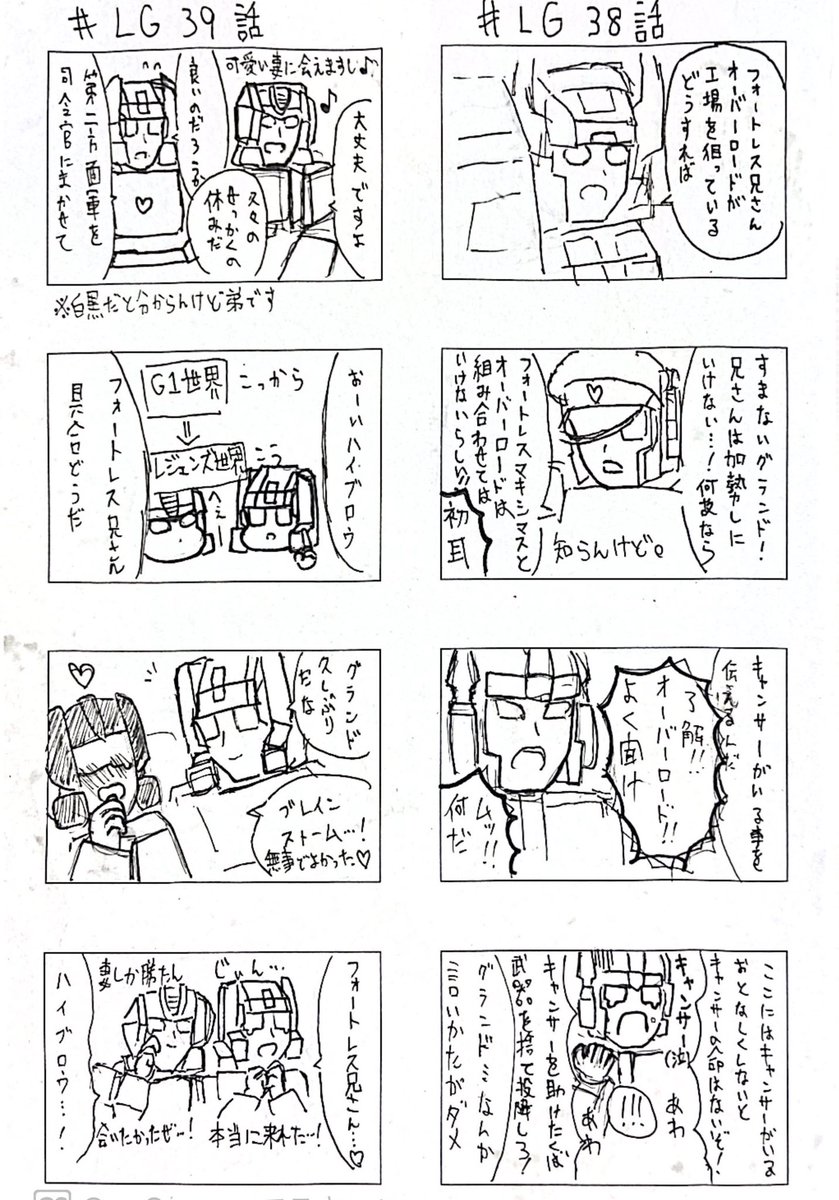 # LG 38話
フォートレス兄さん
オーバーロードが
工場を狙っている
どうすれば
すまないグランド!
兄さんは加勢しに
いけない…!何故なら
フォートレスマキシマスと
オーバーロードは
組み合わせては
いけないらしい!!
知らんけど。
初耳
キャンサーがいる事を
伝えるんだ
了解!!
オーバーロード!!
よく聞け
ムッ!!
何だ
ここにはキャンサーがいる
おとなしくしないと
キャンサーの命はないぞ!
キャンサー(泣)
あわ
!!!
あわ
キャンサーを助けたくば
武器を捨て投降しろ!
グランド…なんか
言いかたがダメ
# LG 39話
可愛い妻に会えますし♪
♪
大丈夫ですよ
久々の
せっかくの
休みだ
良いのだろうか
第二方面軍を
司令官にまかせて
※白黒だと分からんけど弟です
おーいハイブロウ
G1世界
こっから
⇓
レジェンズ世界
こう
へぇー
フォートレス兄さん
具合どうだ
グランド
久しぶり
だな
ブレイン
ストーム…!
無事でよかった♡
フォートレス兄さん…♡
じぃん…
本当に来れた…!
妻しか勝たん
会いたかったぜー!
ハイブロウ…!